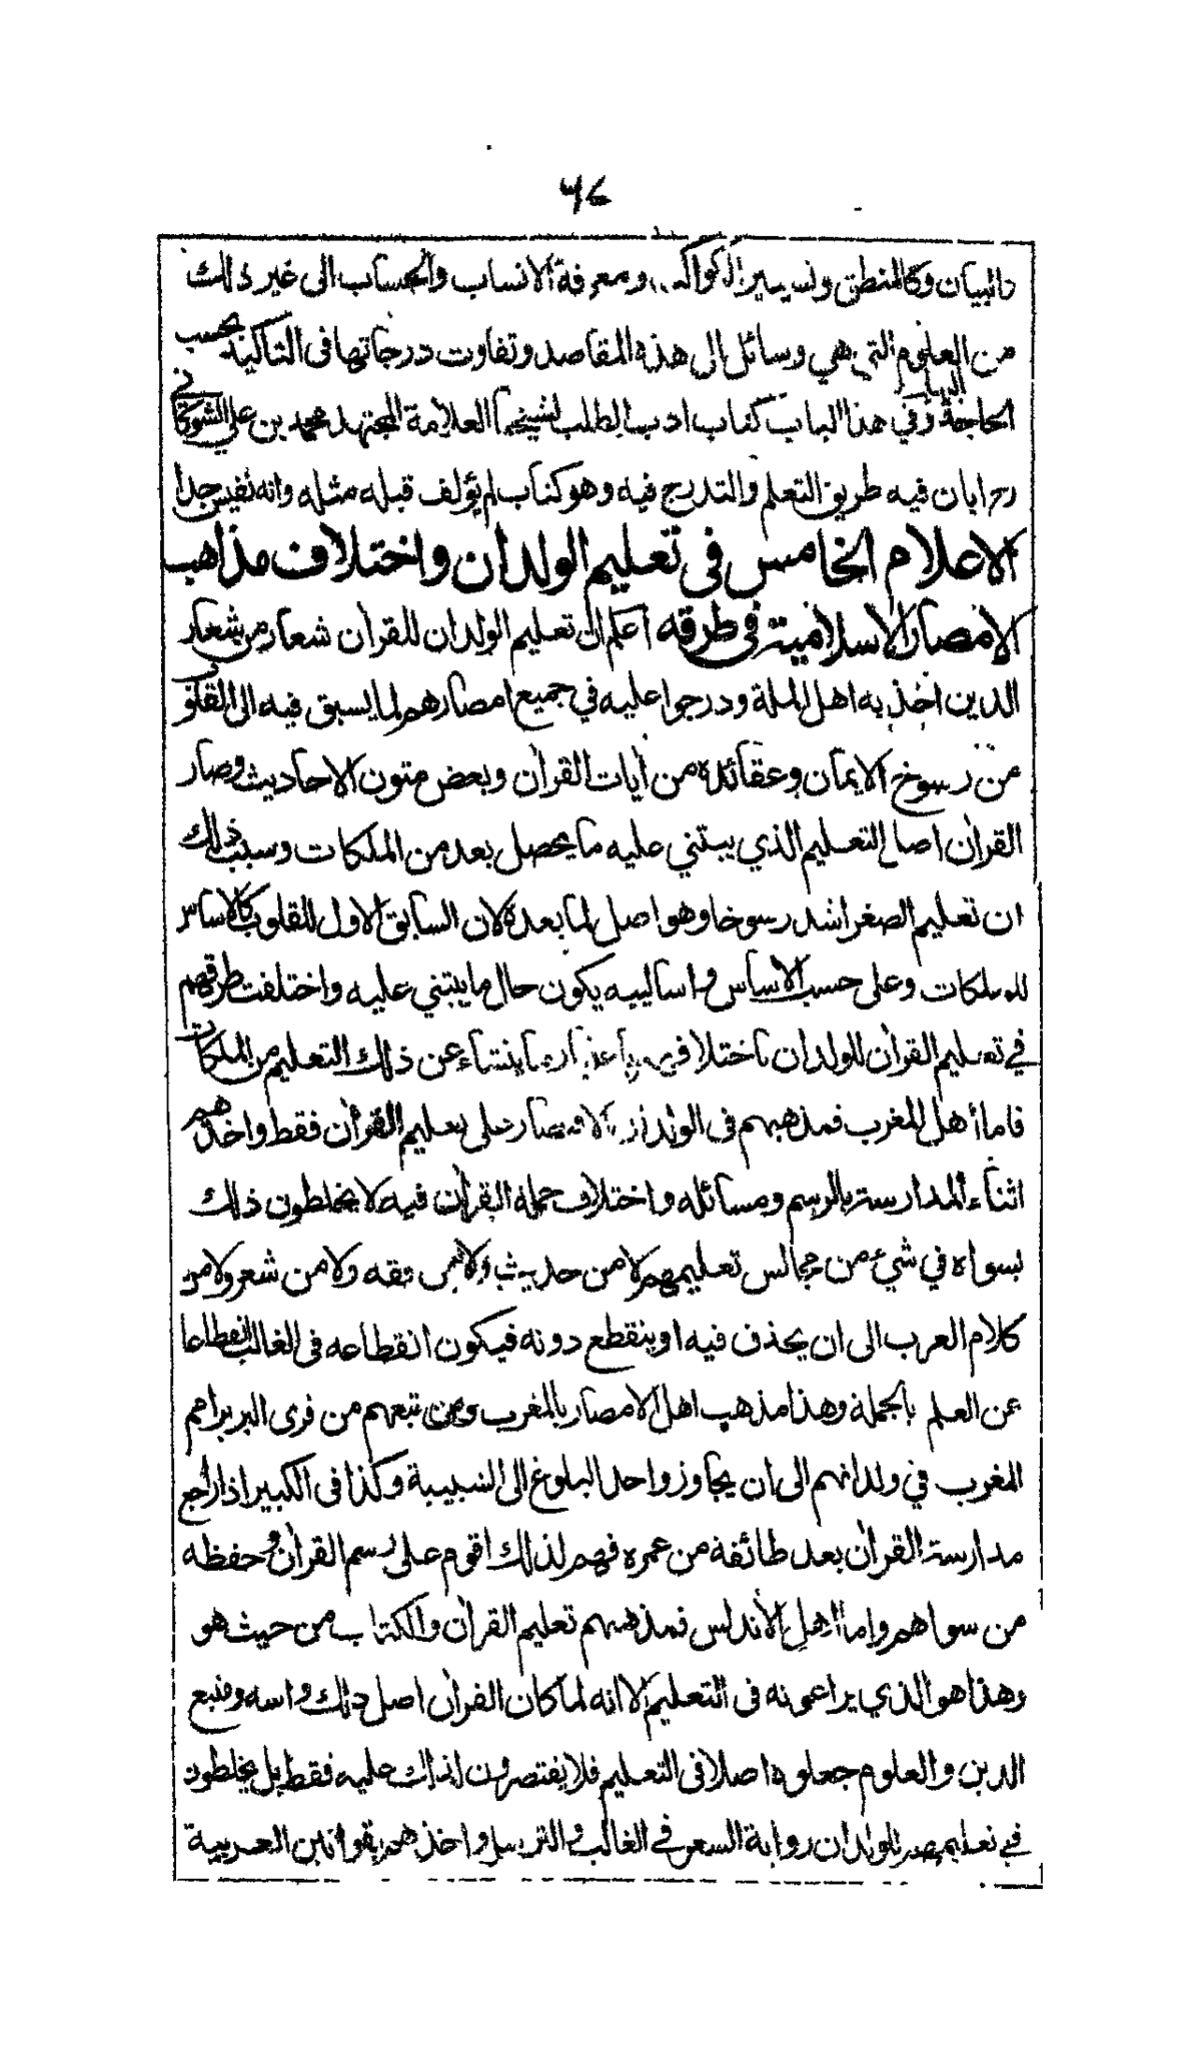 ٦٤
والبيان وكالمنطق وتسيير الكواكب ومعرفة الانساب والحساب الى غير ذلك
من العلوم التي هي وسائل الى هذه المقاصد وتفاوت درجاتها في التاكيد بحسب
الحاجة اليها وفي هذا الباب كتاب ادب الطلب لشيخنا العلامة المجتهد محمد بن علي الشوكاني
رح ابان فيه طريق التعلم والتدرج فيه وهو كتاب لم يؤلف قبله مثله وانه نفيس جدا
الاعلام الخامس في تعليم الولدان واختلاف مذاهب
الامصار الاسلامية في طرقه اعلم ان تعليم الولدان للقرآن شعار من شعار
الدين اخذ به اهل الملة ودرجوا عليه في جميع امصارهم لما يسبق فيه الى القلوب
من رسوخ الايمان وعقائده من آيات القرآن وبعض متون الاحاديث وصار
القرآن اصل التعليم الذي يبتني عليه ما يحصل بعد من الملكات وسبب ذلك
ان تعليم الصغر اشد رسوخا وهو اصل لما بعده لان السابق الاول للقلوب كالاساس
للملكات وعلى حسب الاساس واساليبه يكون حال ما يبتني عليه واختلفت طرقهم
في تعليم القرآن للولدان باختلافهم باعتبار ما ينشاء عن ذلك التعليم من الملكات
فاما أهل المغرب فمذهبهم في الولدان الاقتصار على تعليم القرآن فقط واخذهم
اثناء المدارسة بالرسم ومسائله واختلاف حملة القرآن فيه لا يخلطون ذلك
بسواه في شيء من مجالس تعليمهم لا من حديث ولا من فقه ولا من شعر ولا من
كلام العرب الى ان يحذف فيه او ينقطع دونه فيكون انقطاعه في الغالب انقطاعا
عن العلم بالجملة وهذا مذهب اهل الامصار بالمغرب ومن تبعهم من قرى البربر امم
المغرب في ولدانهم الى ان يجاوزوا حد البلوغ الى الشبيبة وكذا في الكبير اذا راجع
مدارسة القرآن بعد طائفة من عمره فهم لذلك اقوم على رسم القرآن وحفظه
من سواهم واما أهل الأندلس فمذهبهم تعليم القرآن والكتاب من حيث هو
وهذا هو الذي يراعونه في التعليم الا انه لما كان القرآن اصل ذلك واسه ومنبع
الدين والعلوم جعلوه اصلا في التعليم فلا يقتصرون لذلك عليه فقط بل يخلطون
في تعليمهم للولدان رواية الشعر في الغالب والترسل واخذهم بقوانين العربية